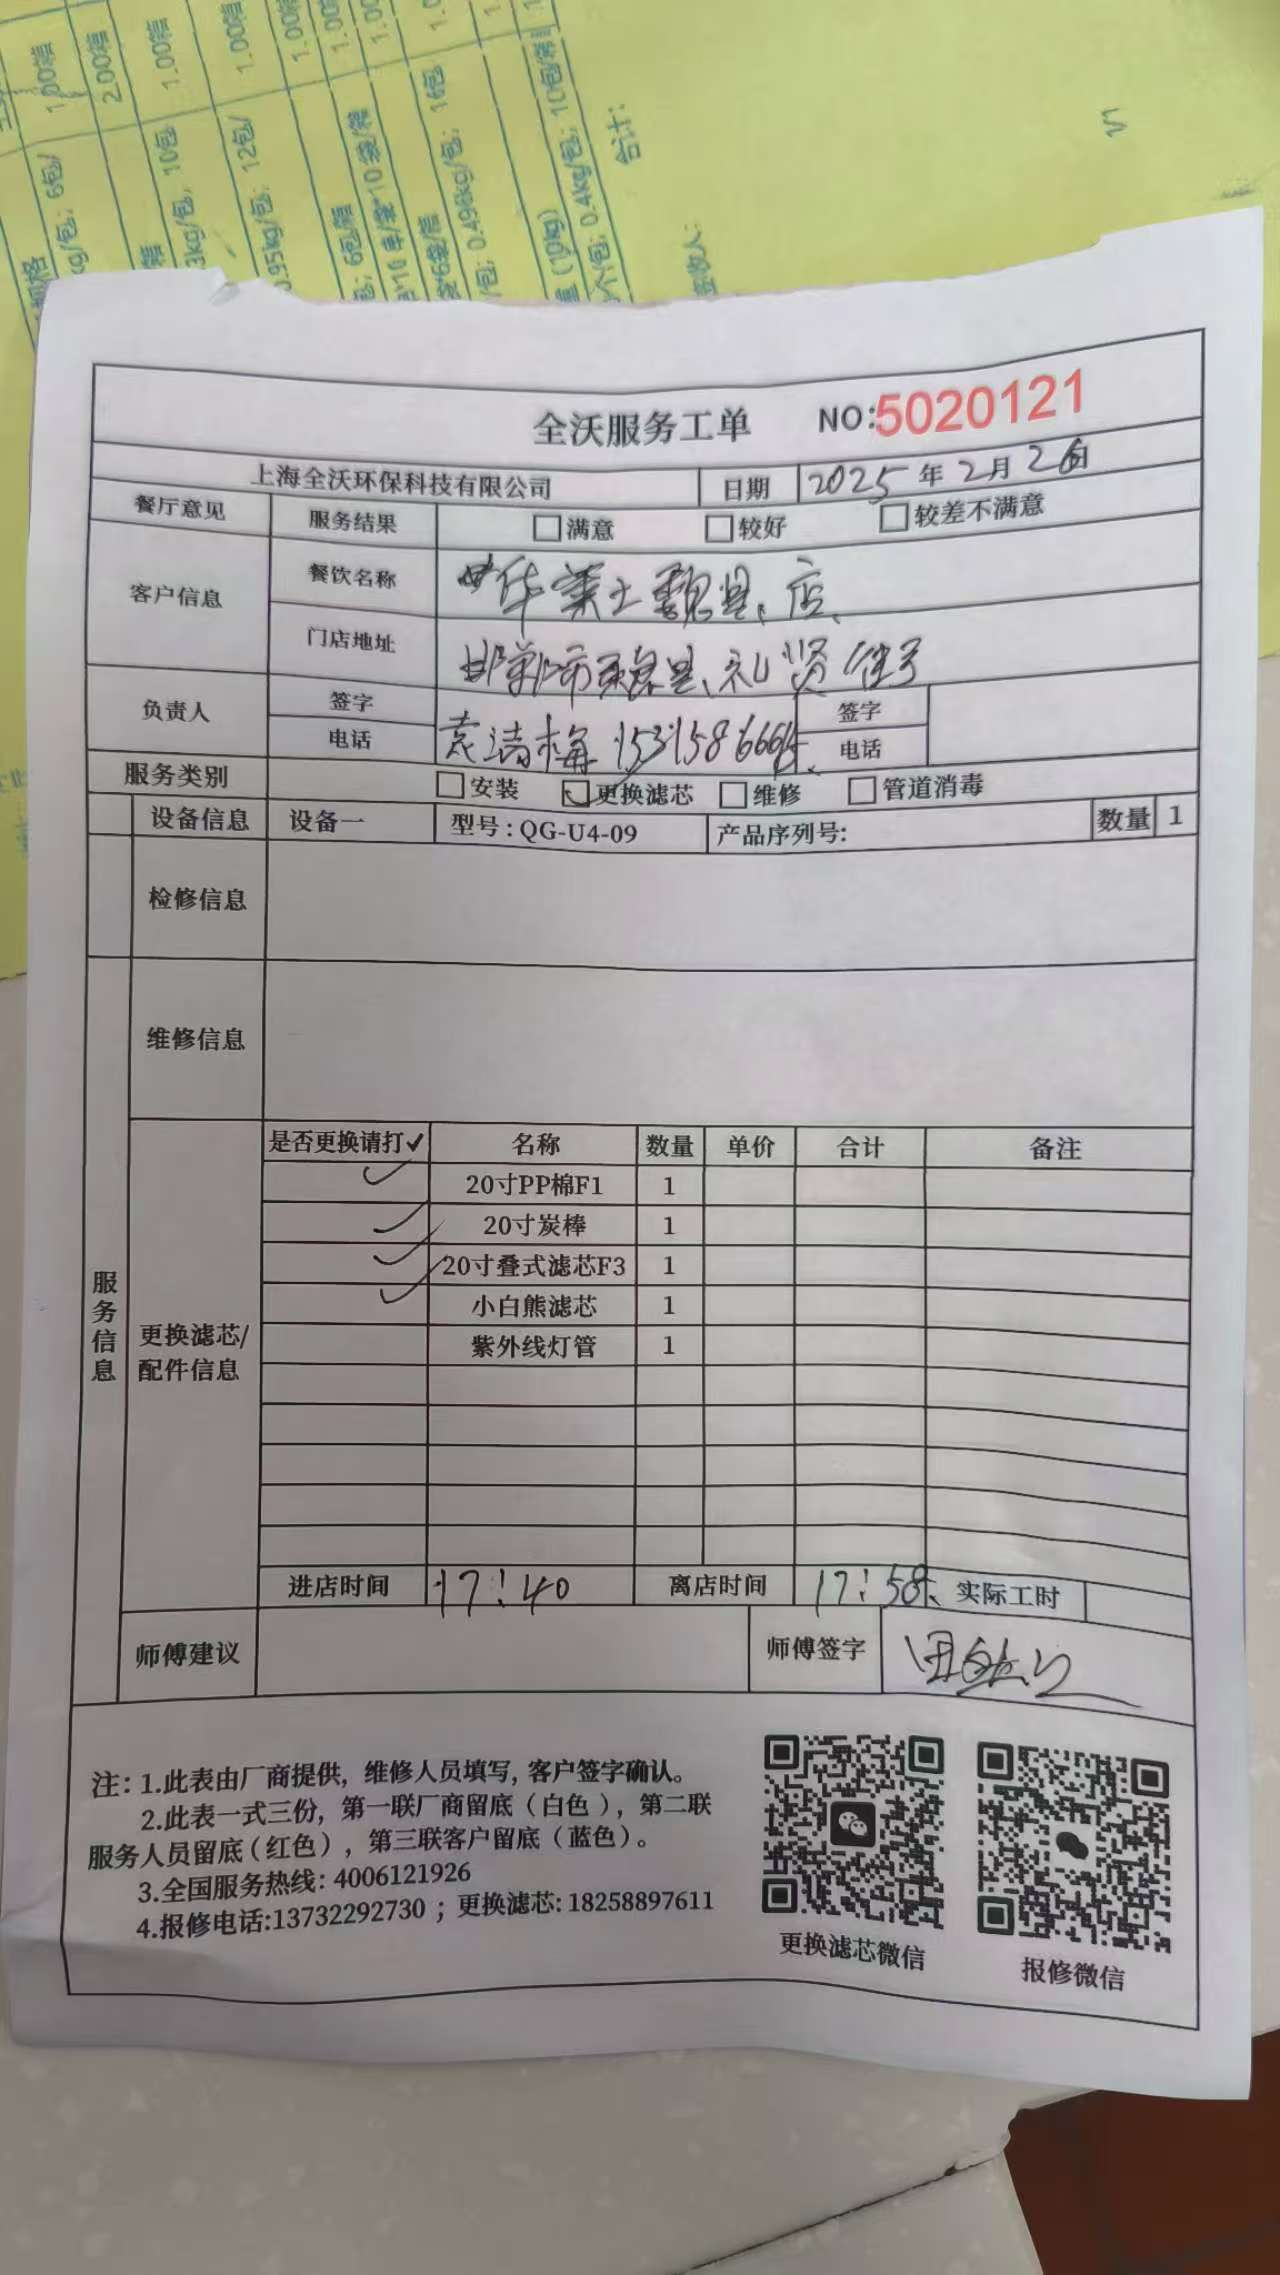 1.00箱
2.00箱
1.00箱
1.00箱
合计：
签收人：
全沃服务工单 NO:5020121
上海全沃环保科技有限公司 日期 2025年2月26日
餐厅意见 服务结果 满意 较好 较差不满意
客户信息 餐饮名称 华莱士魏县店
门店地址 邯郸市魏县礼贤街
负责人 签字 签字
电话 电话
服务类别 安装 更换滤芯 维修 管道消毒
设备信息 设备一 型号：QG-U4-09 产品序列号： 数量 1
检修信息
维修信息
服务信息
更换滤芯/
配件信息
是否更换请打✓ 名称 数量 单价 合计 备注
✓ 20寸PP棉F1 1
✓ 20寸炭棒 1
✓ 20寸叠式滤芯F3 1
✓ 小白熊滤芯 1
紫外线灯管 1
进店时间 17:40 离店时间 17:58 实际工时
师傅建议 师傅签字
注：1.此表由厂商提供，维修人员填写，客户签字确认。
2.此表一式三份，第一联厂商留底（白色），第二联
服务人员留底（红色），第三联客户留底（蓝色）。
3.全国服务热线：4006121926
4.报修电话:13732292730；更换滤芯：18258897611
更换滤芯微信
报修微信